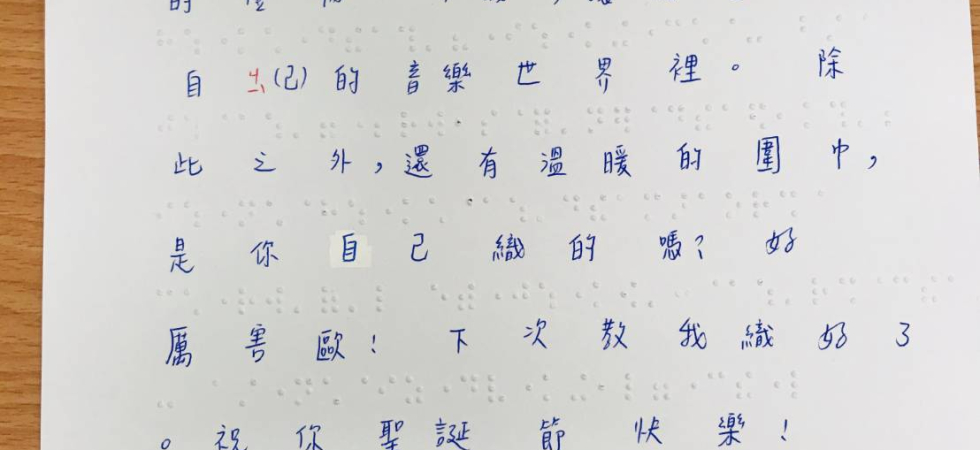 的
自ㄐ(己)的音樂世界裡。除
此之外,還有溫暖的圍巾,
是你自己織的嗎?好
厲害歐!下次教我織好了
。祝你聖誕節快樂!